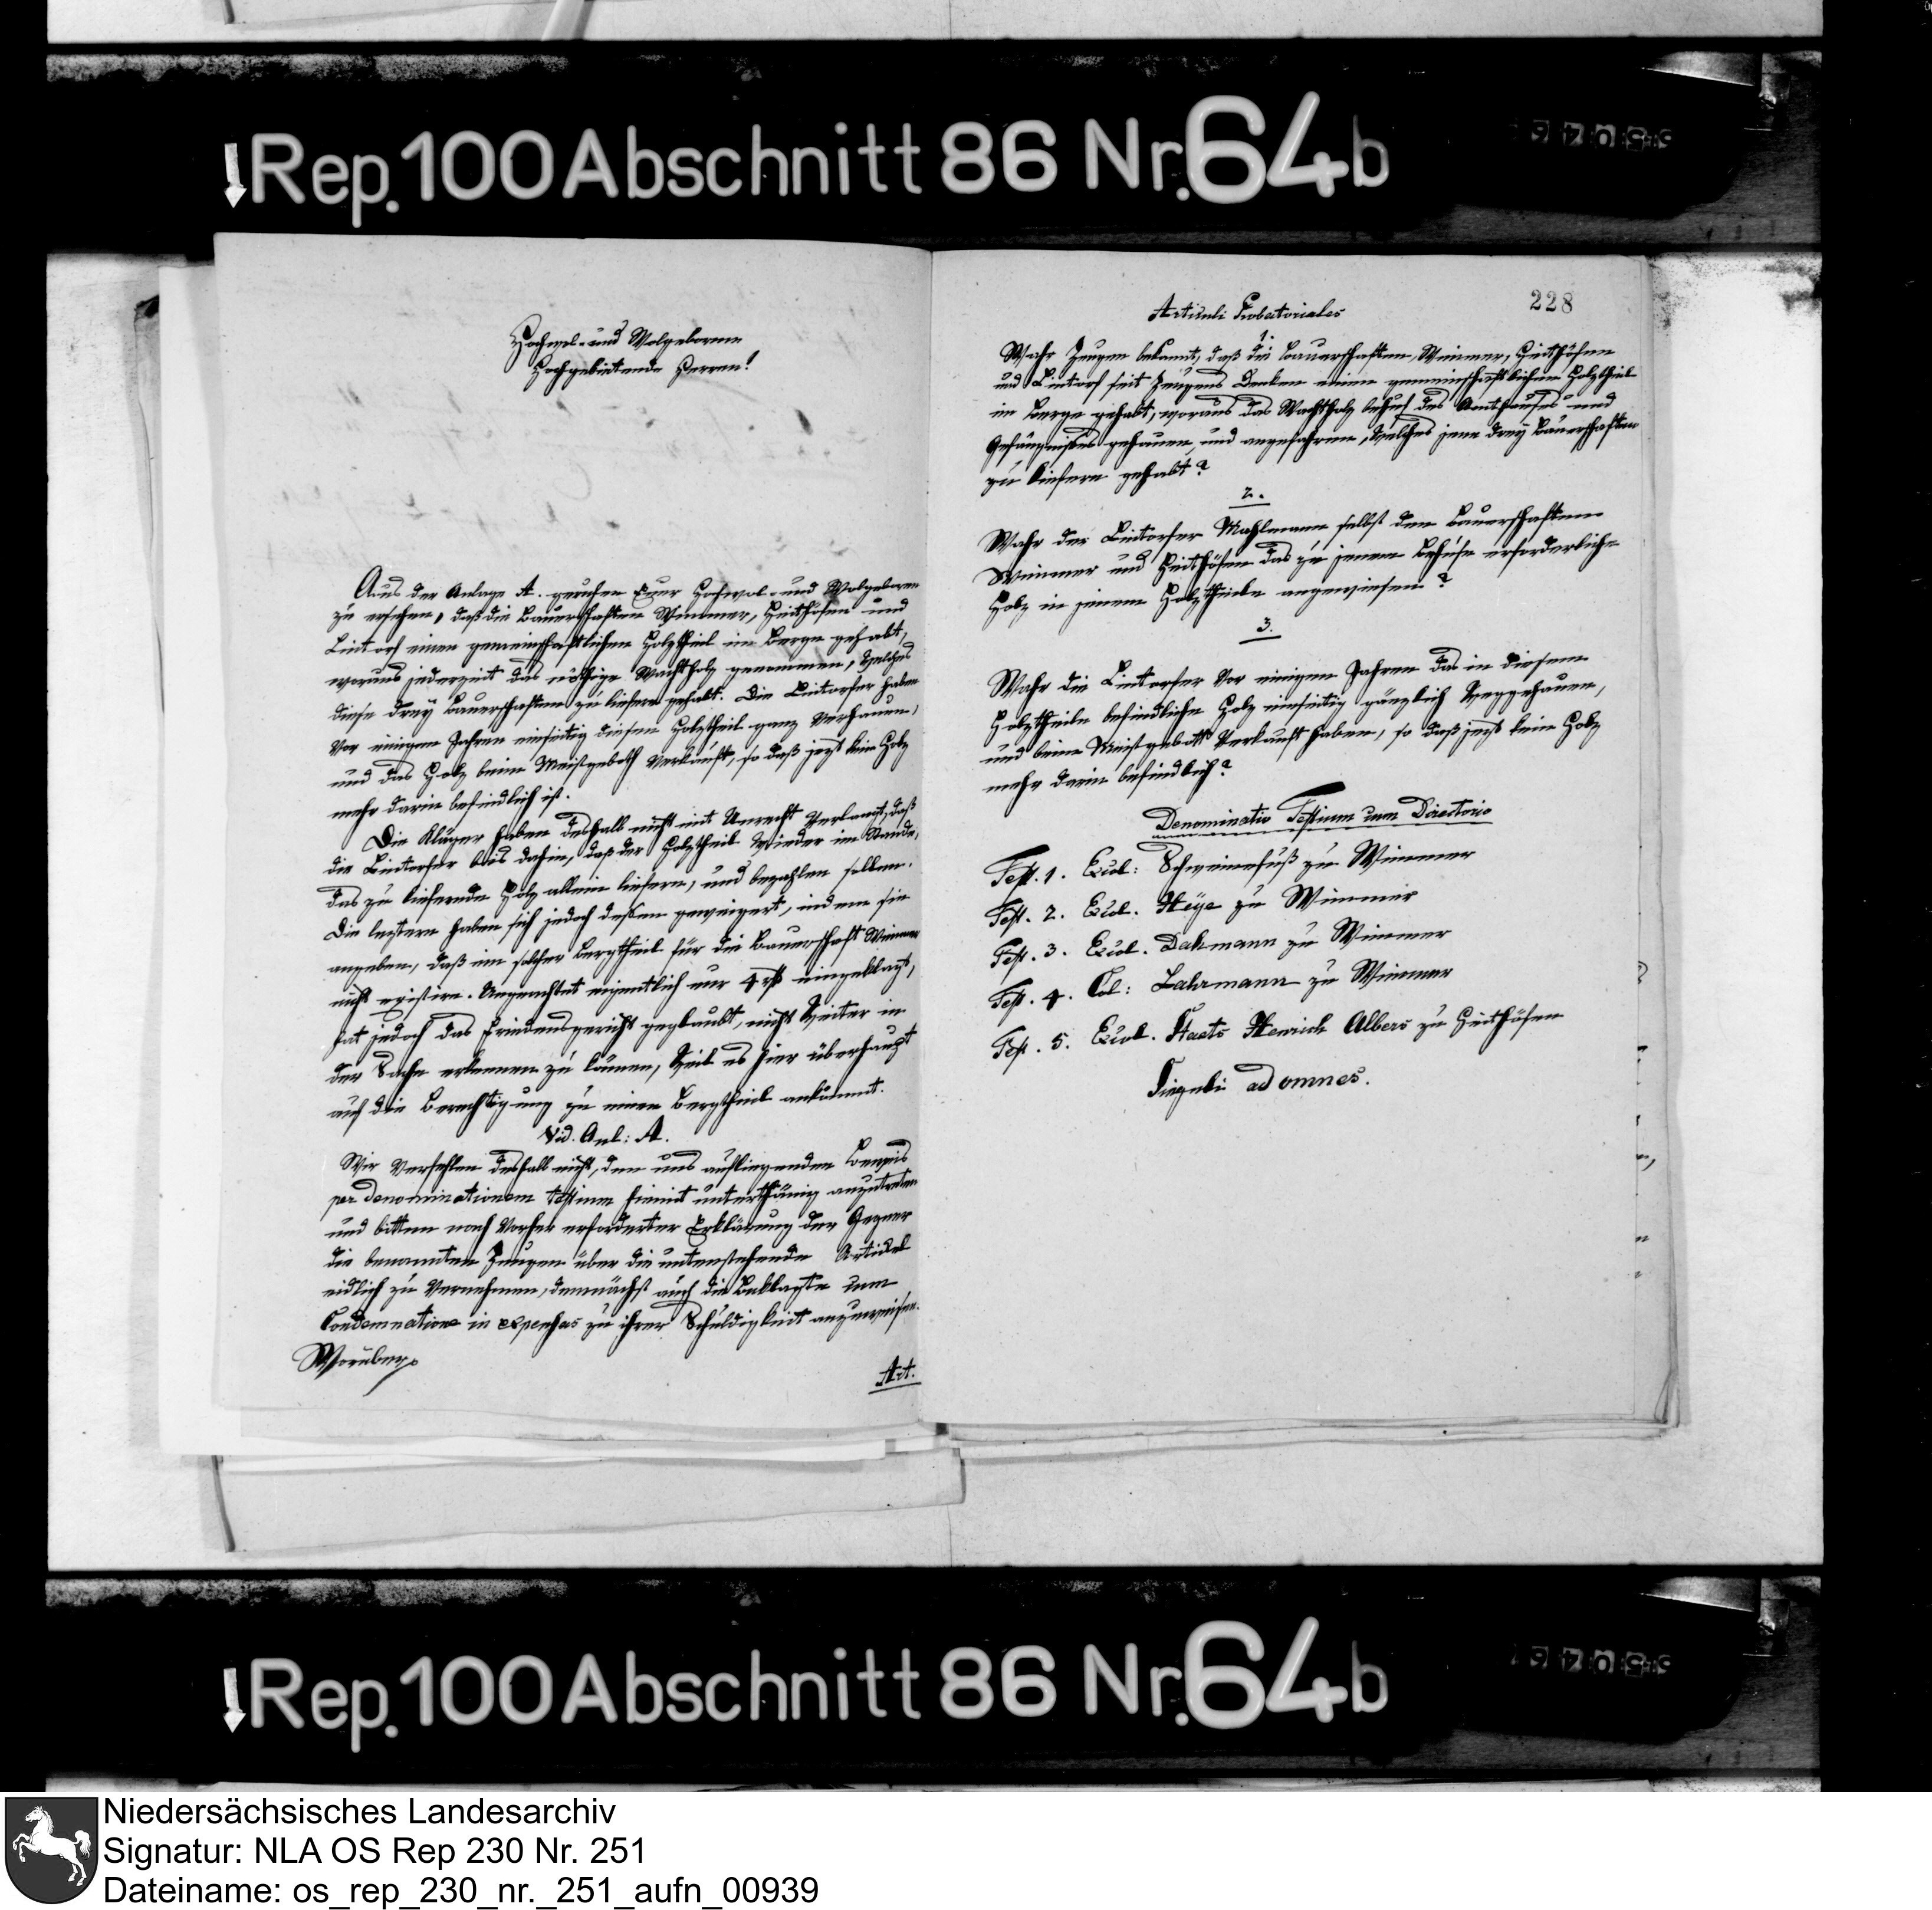 Rep. 100 Abschnitt 86 Nr. 64b
Hochwol- und Wolgeborne
Hochgebietende Herren!
Aus der Anlage A. geruhen Euer Hochwol- und Wolgeboren
zu ersehen, daß die Bauerschaften Wimmer, Heithöfen und
Lintorf einen gemeinschaftlichen Holztheil im Berge gehabt,
woraus jederzeit das nöthige Wachtholz genommen, welches
diese drey Bauerschaften zu liefern gehabt. Die Lintorfer haben
vor einigen Jahren einseitig diesen Holztheil ganz verhauen,
und das Holz beim Meistgeboth verkauft, so daß jezt kein Holz
mehr darin befindlich ist.
Die Kläger haben deshalb nicht mit Unrecht verlangt, daß
die Lintorfer bis dahin, daß der Holztheil wieder im Stande,
das zu liefernde Holz allein liefern, und bezahlen sollen.
Die leztern haben sich jedoch deßen geweigert, indem sie
angeben, daß ein solcher Bergtheil für die Bauerschaft Wimmer
nicht existire. Ungeachtet eigentlich nur 4 rthl eingeklagt,
hat jedoch das Friedensgericht geglaubt, nicht weiter in
der Sache erkennen zu können, weil es hier überhaupt
auf die Berechtigung zu einem Bergtheil ankömmt.
Vid. Anl: A.
Wir verfehlen deshalb nicht, den uns aufliegenden Beweis
per denominationem testium hiemit unterthänig anzutreten
und bitten nach vorher erforderter Erklärung der Gegner
die benannten Zeugen über die untenstehende Artikel
eidlich zu vernehmen, demnächst auch die Beklagte cum
Condemnatione in expensas zu ihrer Schuldigkeit anzuweisen.
Worüber
Art.
228
Articuli Probatoriales
1.
Wahr Zeugen bekannt, daß die Bauerschaften, Wimmer, Heithöfen
und Lintorf seit Zeugens Denken einen gemeinschaftlichen Holztheil
im Berge gehabt, woraus das Wachtholz behuf des Amthauses und
Gefängnißes gehauen, und angefahren, welches jene drey Bauerschaften
zu liefern gehabt?
2.
Wahr der Lintorfer Mahlmann selbst den Bauerschaften
Wimmer und Heithöfen das zu jenem Behufe erforderliche
Holz in jenem Holztheile angewiesen?
3.
Wahr die Lintorfer vor einigen Jahren das in diesem
Holztheile befindliche Holz einseitig gänzlich weggehauen,
und beim Meistgebott verkauft haben, so daß jezt kein Holz
mehr darin befindlich?
Denominatio Testium cum Directorio
Test. 1. Col: Schweinefuß zu Wimmer
Test. 2. Heÿe zu Wimmer
Test. 3. Dahmann zu Wimmer
Test. 4. Col: Lahrmann zu Wimmer
Test. 5. Staats Henrich Albers zu Heithöfen
Singuli ad omnes.
Rep. 100 Abschnitt 86 Nr. 64b
Niedersächsisches Landesarchiv
Signatur: NLA OS Rep 230 Nr. 251
Dateiname: os_rep_230_nr._251_aufn_00939